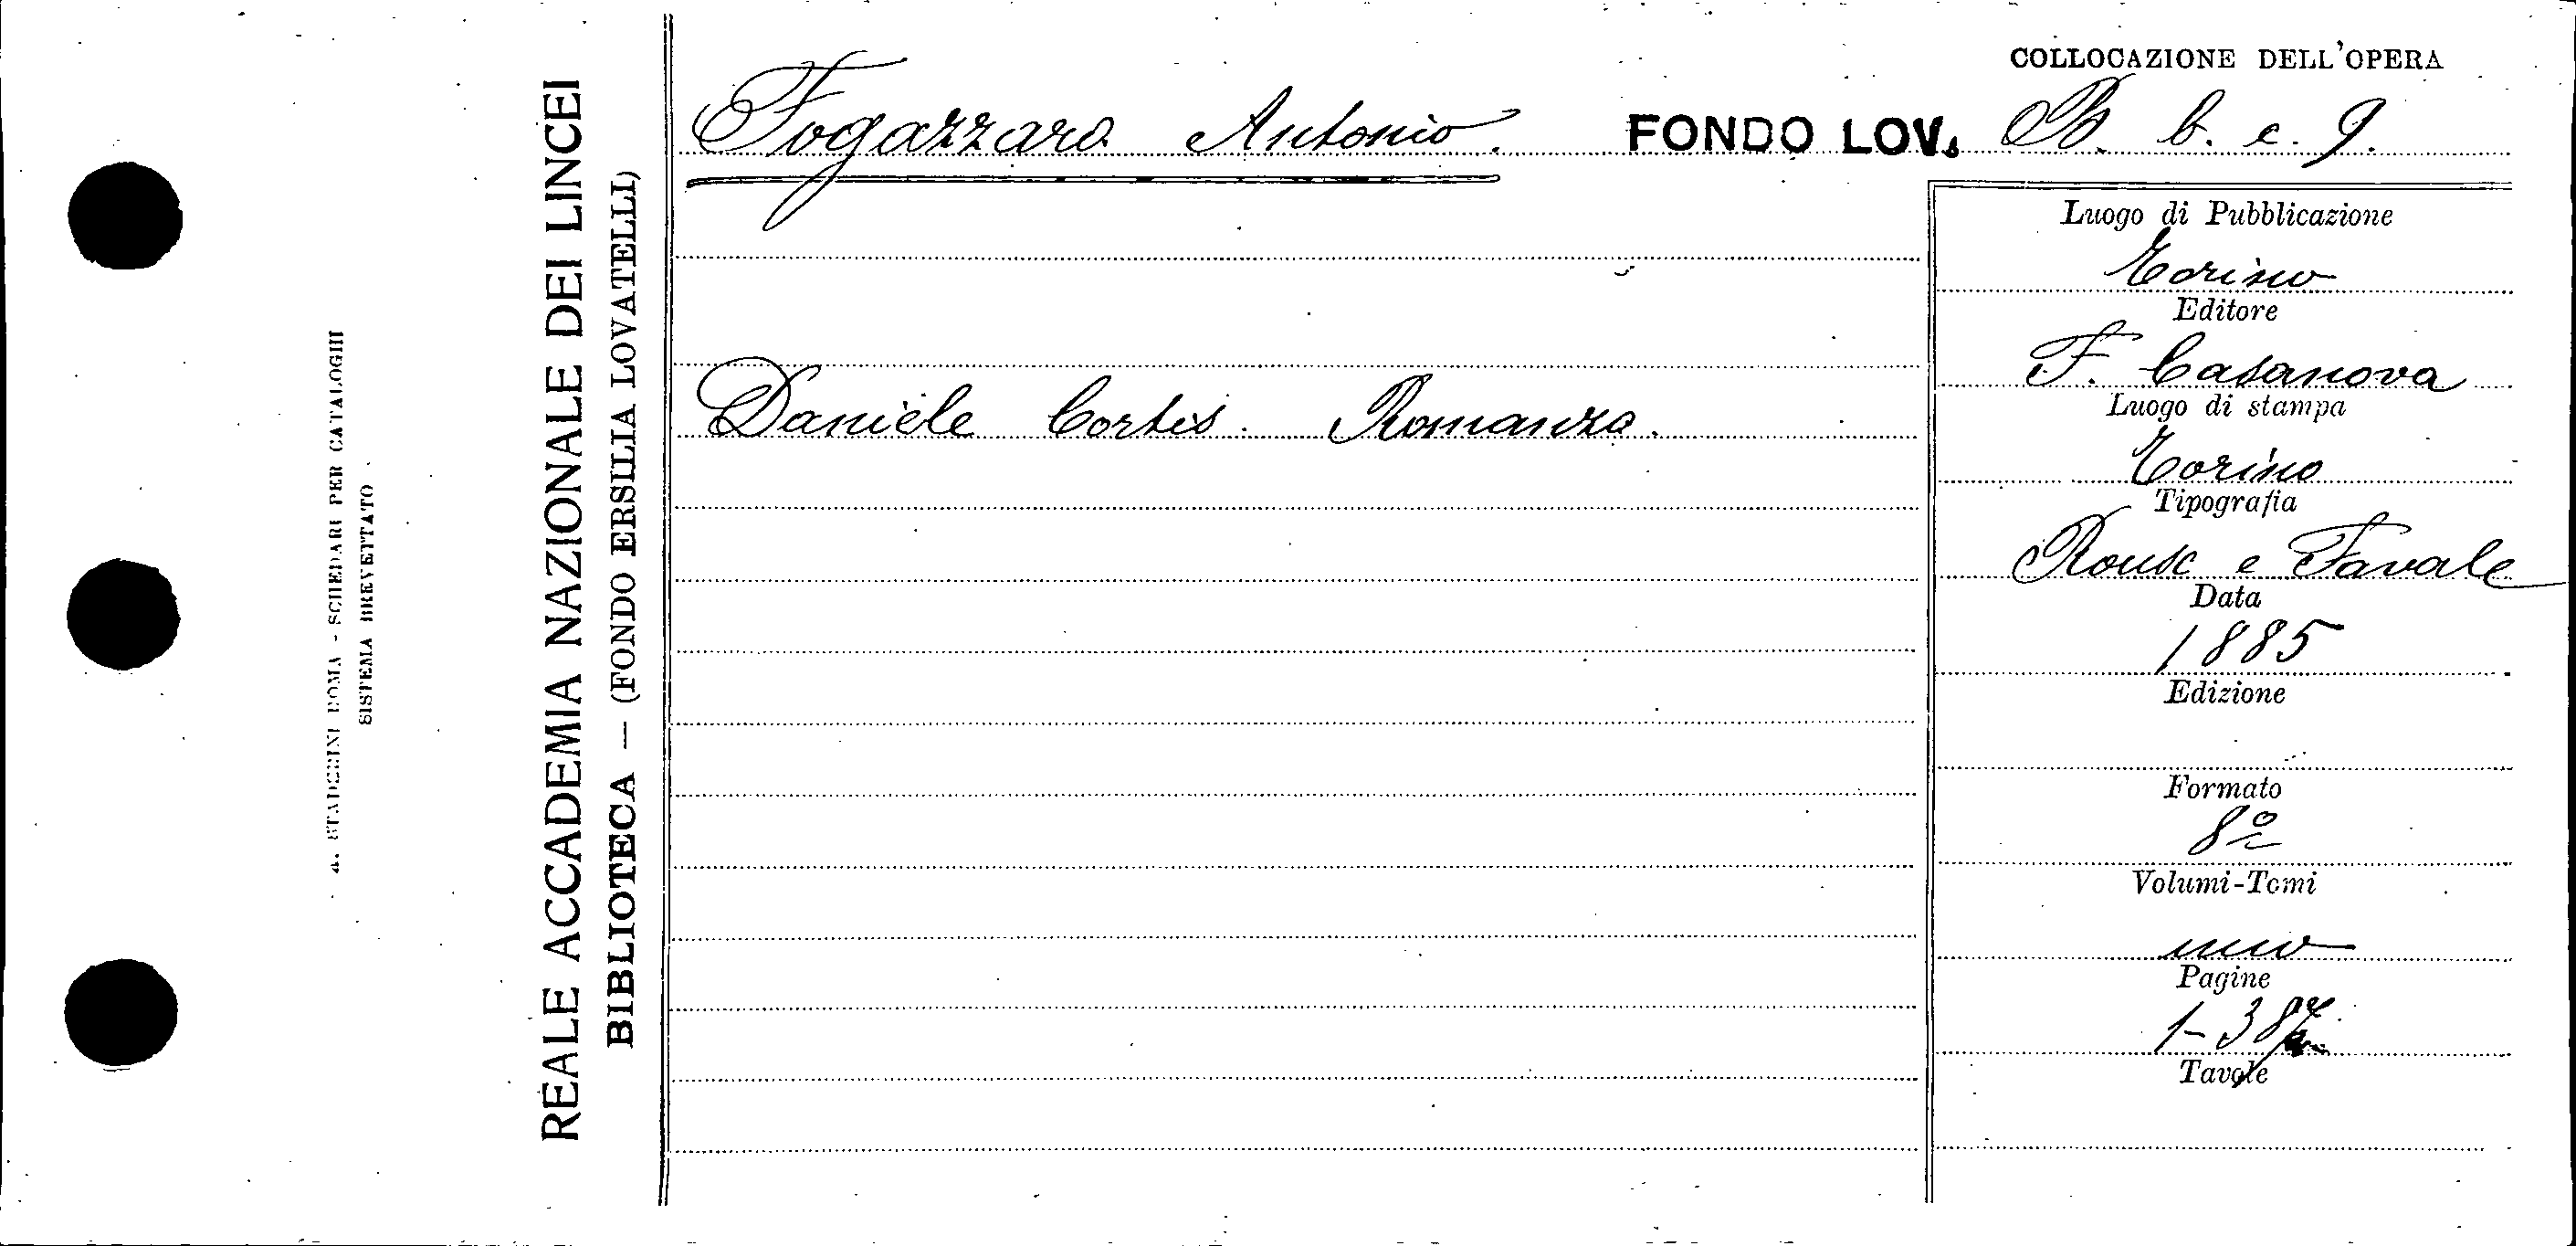 A. STADERINI ROMA - SCHEDARI PER CATALOGHI
SISTEMA BREVETTATO
REALE ACCADEMIA NAZIONALE DEI LINCEI
BIBLIOTECA — (FONDO ERSILIA LOVATELLI)
COLLOCAZIONE DELL'OPERA
Fogazzaro Antonio. FONDO LOV. b. c. 9.
Daniele Cortis. Romanzo.
Luogo di Pubblicazione
Torino
Editore
F. Casanova
Luogo di stampa
Torino
Tipografia
Roux e Favale
Data
1885
Edizione
Formato
8º
Volumi-Tomi
uno
Pagine
1-387
Tavole